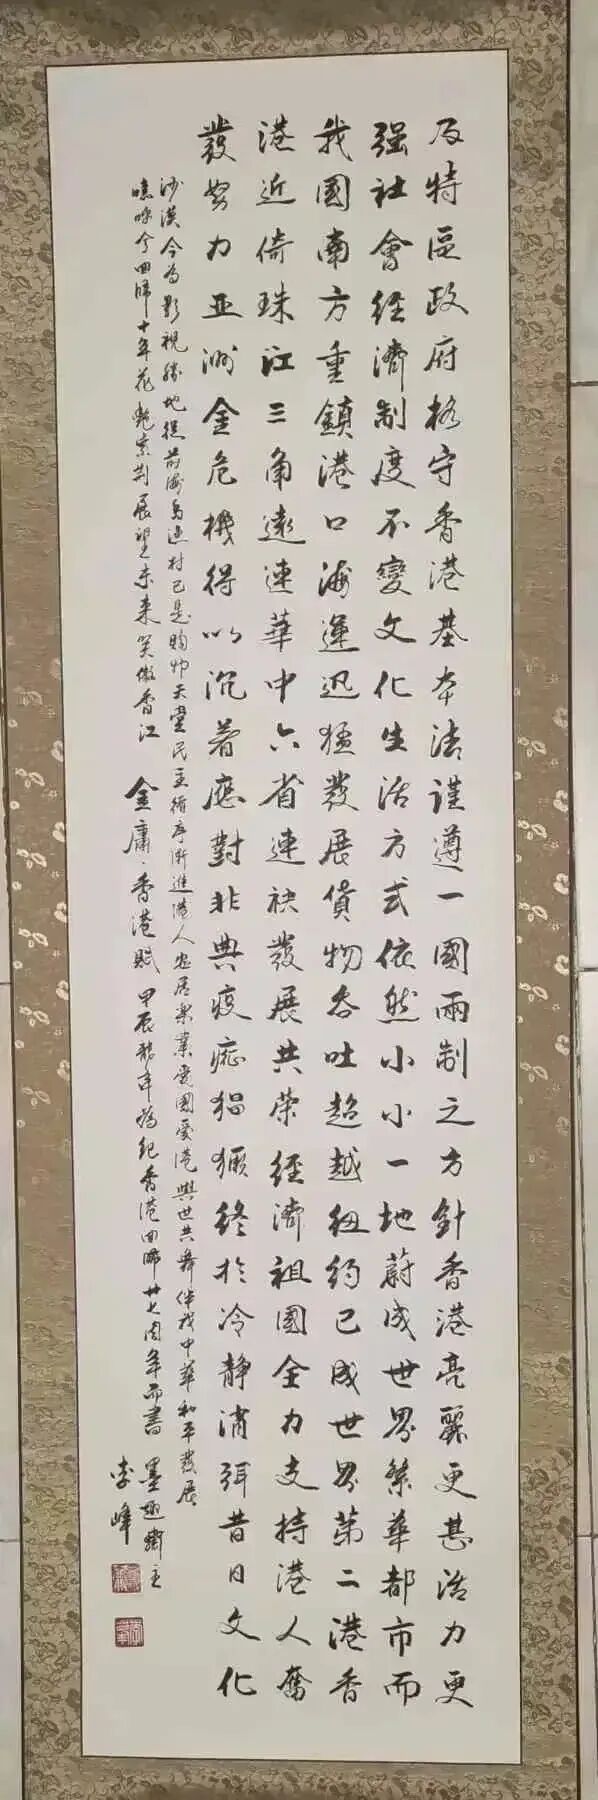 及特區政府恪守香港基本法謹遵一國兩制之方針香港亮麗更甚活力更
强社會经濟制度不變文化生活方式依然小小一地蔚成世界繁華都市而
我國南方重鎮港口海運迅猛發展貨物吞吐超越纽约已成世界第二港香
港近倚珠江三角遠連華中六省連袂發展共荣经濟祖國全力支持港人奮
發努力亚洲金危機得以沉着應對非典疫症猖獗终於冷靜消弭昔日文化
沙漠今為影視勝地從前海島漁村已是购物天堂民主循序漸進港人安居樂業爱國爱港與世共舞伴我中華和平發展
噫嘻兮回歸十年花艷紫荆展望未来笑傲香江 金庸、香港赋 甲辰龍年為纪香港回歸廿七周年而書 墨趣齋主
李峰